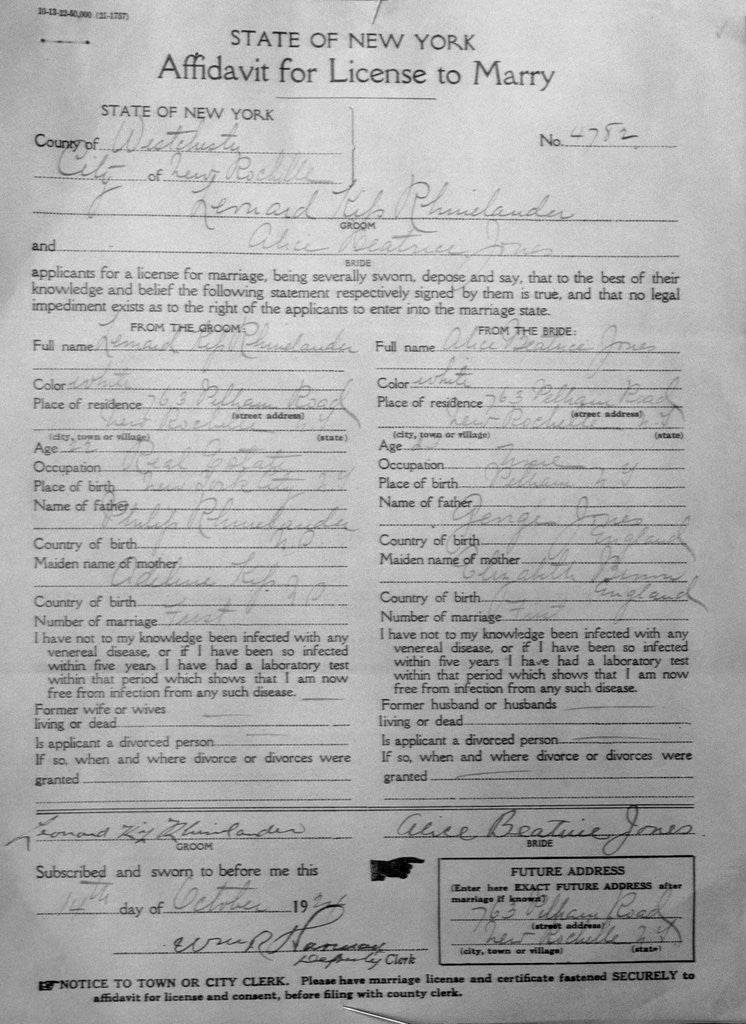 10-13-22-50,000 (21-1757)
STATE OF NEW YORK
Affidavit for License to Marry
STATE OF NEW YORK
County of Westchester
No. 4782
City of New Rochelle
Leonard Kip Rhinelander
GROOM
and Alice Beatrice Jones
BRIDE
applicants for a license for marriage, being severally sworn, depose and say, that to the best of their
knowledge and belief the following statement respectively signed by them is true, and that no legal
impediment exists as to the right of the applicants to enter into the marriage state.
FROM THE GROOM:
Full name Leonard Kip Rhinelander
Color white
Place of residence 763 Pelham Road
(street address)
New Rochelle
(city, town or village) (state)
Age 22
Occupation Real Estate
Place of birth New York City N Y
Name of father
Philip Rhinelander
Country of birth
Maiden name of mother
Adeline Kip
Country of birth
Number of marriage First
I have not to my knowledge been infected with any
venereal disease, or if I have been so infected
within five years I have had a laboratory test
within that period which shows that I am now
free from infection from any such disease.
Former wife or wives
living or dead
Is applicant a divorced person
If so, when and where divorce or divorces were
granted
FROM THE BRIDE:
Full name Alice Beatrice Jones
Color white
Place of residence 763 Pelham Road
(street address)
New Rochelle N Y
(city, town or village) (state)
Age
Occupation None
Place of birth Pelham N Y
Name of father
George Jones
Country of birth England
Maiden name of mother
Elizabeth
Country of birth England
Number of marriage First
I have not to my knowledge been infected with any
venereal disease, or if I have been so infected
within five years I have had a laboratory test
within that period which shows that I am now
free from infection from any such disease.
Former husband or husbands
living or dead
Is applicant a divorced person
If so, when and where divorce or divorces were
granted
Leonard Kip Rhinelander
GROOM
Alice Beatrice Jones
BRIDE
Subscribed and sworn to before me this
14th day of October 1924
Deputy Clerk
FUTURE ADDRESS
(Enter here EXACT FUTURE ADDRESS after
marriage if known)
763 Pelham Road
(street address)
New Rochelle N Y
(city, town or village) (state)
NOTICE TO TOWN OR CITY CLERK. Please have marriage license and certificate fastened SECURELY to
affidavit for license and consent, before filing with county clerk.